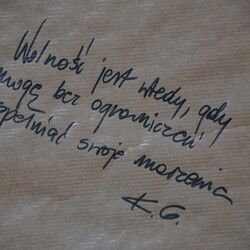 Wolność jest wtedy, gdy
mogę bez ograniczeń
spełniać swoje marzenia
K.G.